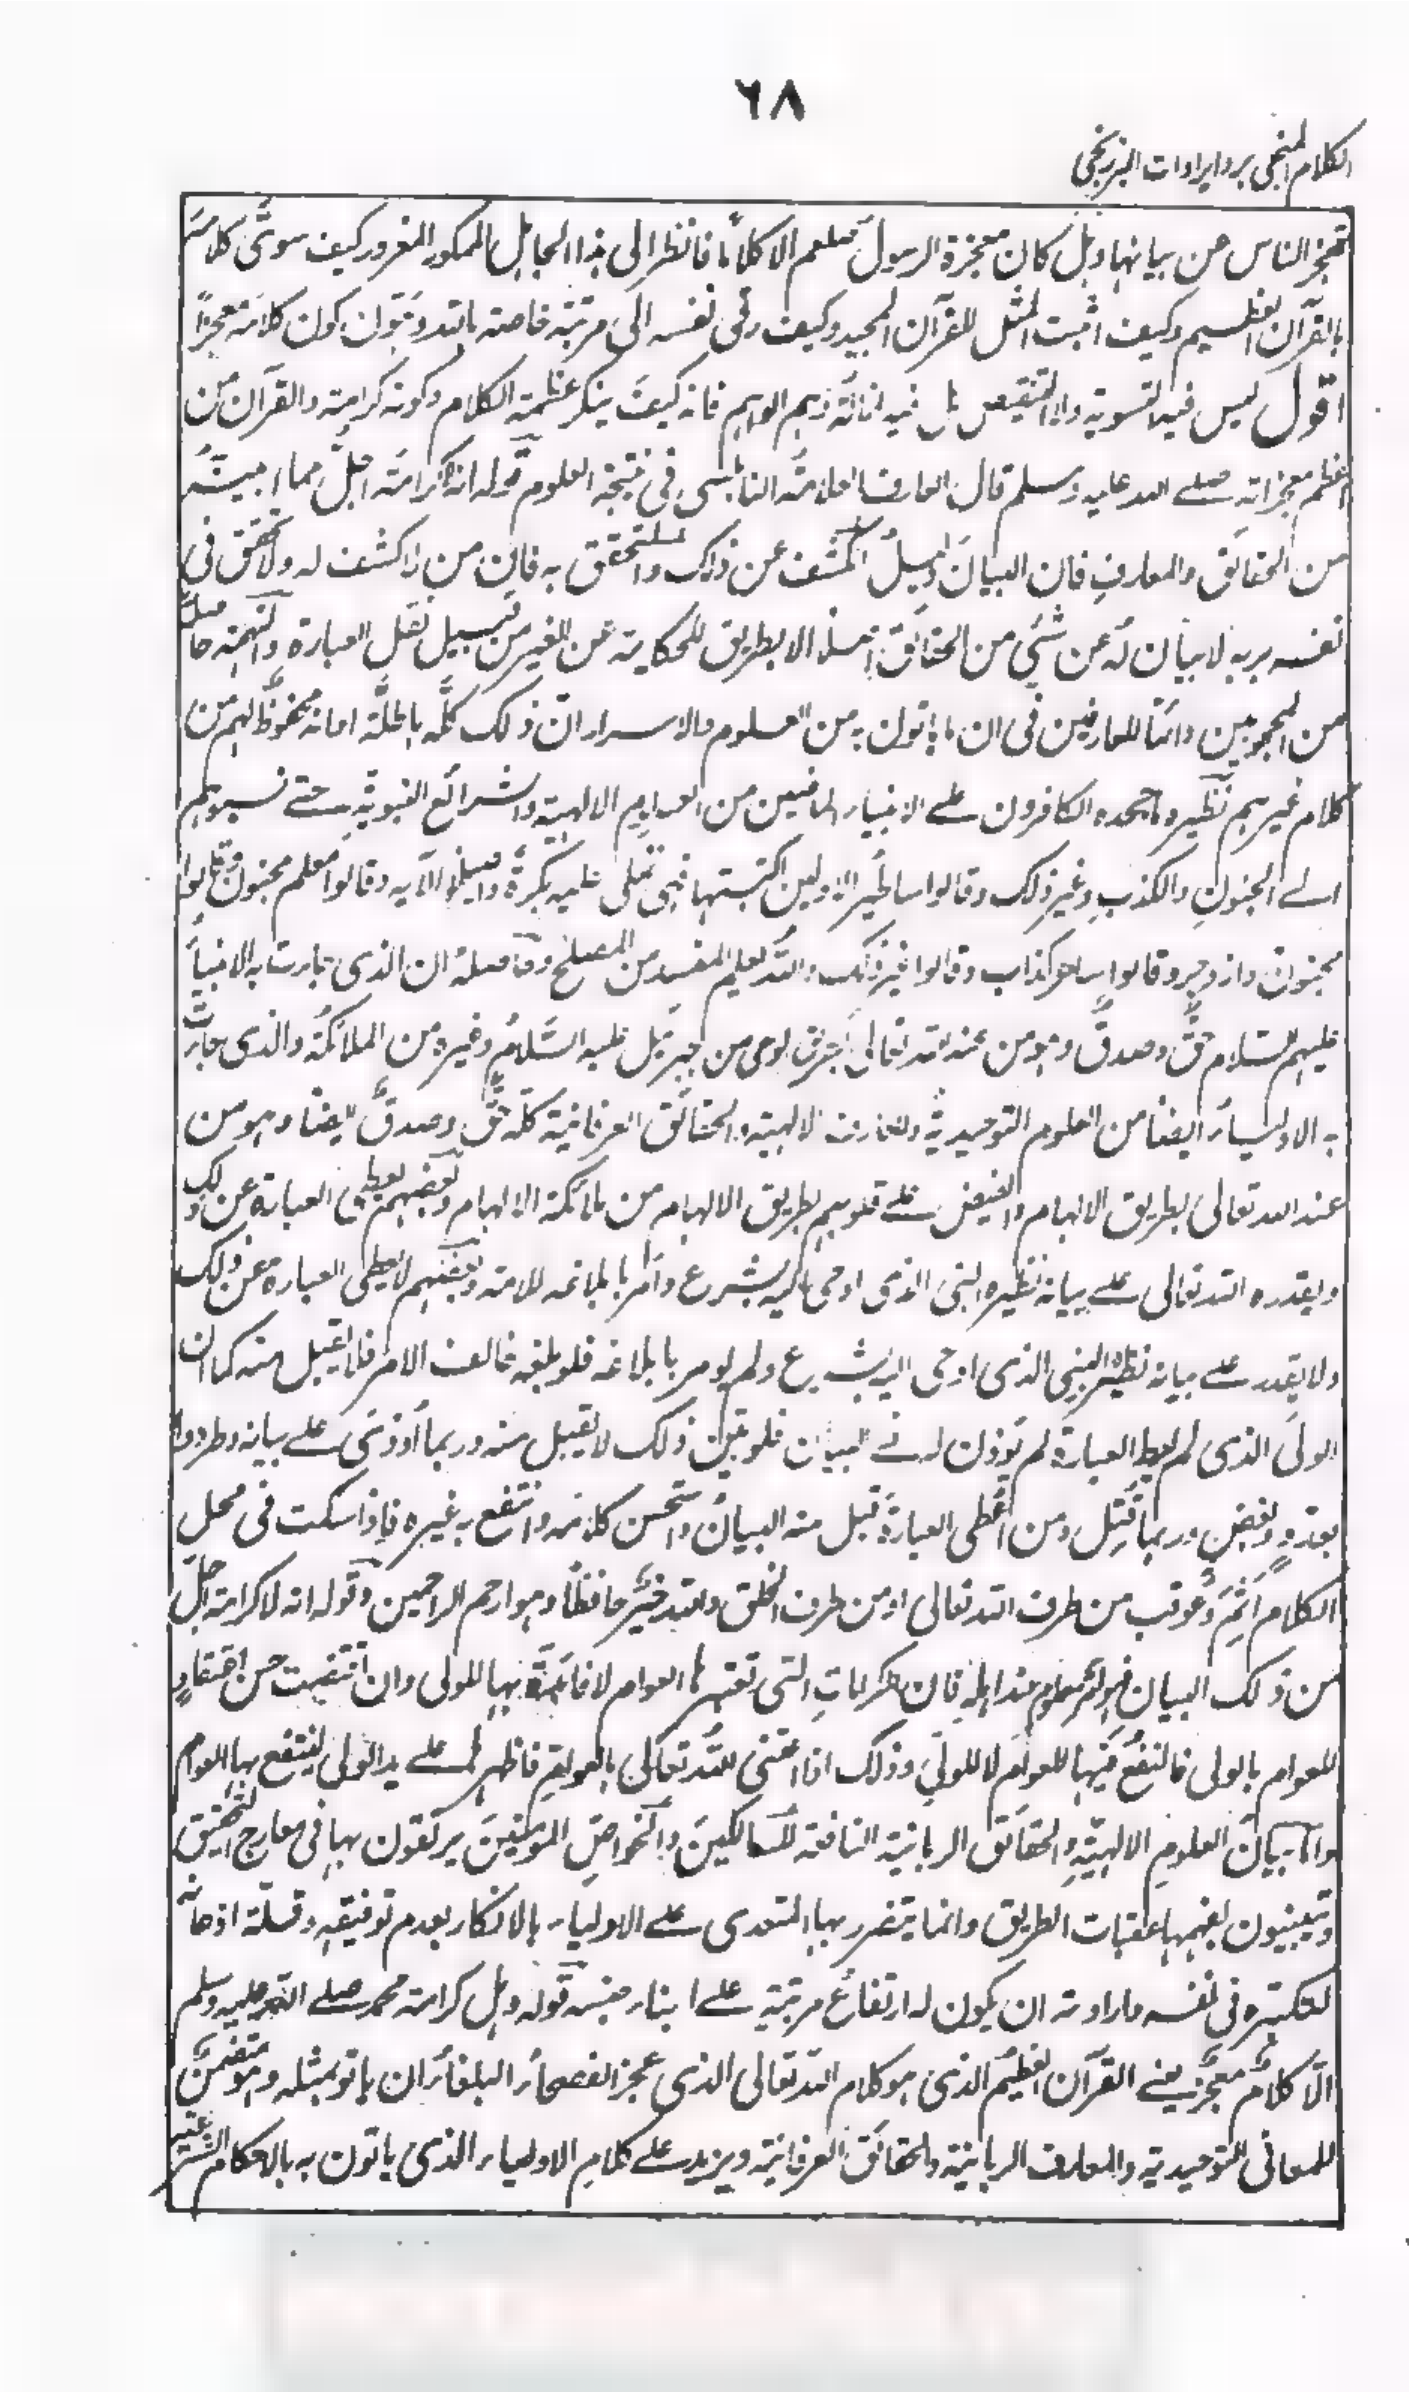 ٦٨
الكلام المنجى برد ايرادات البرزنجى
تعجز الناس عن بيانها وهل كان معجزة الرسول صلعم الا كلاما فانظر الى هذا الجاهل الممكور المغرور كيف سوى كلامه
بالقرآن العظيم وكيف اثبت المثل للقرآن المجيد وكيف رقى نفسه الى مرتبة خاصة بالله كون كلامه معجزا
اقول ليس فيه التسوية ولا التنقيص بل فيه ازالة وهم الواهم فانه كيف ينكر عظمة الكلام وكونه كرامة والقرآن من
اعظم معجزاته صلے الله عليه وسلم قال العارف العلامة النابلسى فى نتيجة العلوم قوله انه لا كرامة اجل مما ابينه
من الحقائق والمعارف فان البيان دليل الكشف عن ذلك والتحقق به فان من لا كشف له ولا تحقق فى
نفسه بربه لا بيان له عن شئ من الحقائق اصلا الا بطريق الحكاية عن الغير من قبيل نقل العبارة والتهمة حاصلة
من المحجوبين دائما للعارفين فى ان ما ياتون به من العلوم والاسرار ان ذلك كله باطلة او انه محفوظ لهم من
كلام غيرهم نظير ما جحده الكافرون على الانبياء الماضين من العلوم الالهية والشرائع النبوية حتے نسبوهم
الے الجنون والكذب وغير ذلك وقالوا ساطير الاولين اكتتبها فهى تملى عليه بكرة واصيلا الآيه وقالوا معلم مجنون وقالوا
مجنون وازدجر وقالوا ساحر كذاب وقالوا غير ذلك والله يعلم المفسد من المصلح وحاصله ان الذى جاءت به الانبياء
عليهم السلام حق وصدق وهو من عند الله تعالى بطريق الوحى من جبرئيل عليه السلام وغيره من الملائكة والذى جاءت
به الاولياء ايضا من العلوم التوحيدية والمعارف الالهية والحقائق العرفانية كله حق وصدق ايضا وهو من
عند الله تعالى بطريق الالهام والفيض علے قلوبهم بطريق الالهام من ملائكة الالهام وبعضهم يعطى العبارة عن ذلك
ويقدره الله تعالى علے بيانه نظيره النبى الذى اوحى اليه بشرع وامر بابلاغه للامة وبعضهم لا يعطى العبارة عن ذلك
ولا يقدر علے بيانه نظيره النبى الذى اوحى اليه بشرع ولم يومر بابلاغه فلو بلغه خالف الامر فلا يقبل منه كما ان
الولى الذى لم يعط العبارة لم يوذن له فے البيان فلو بين ذلك لا يقبل منه وربما اوذى علے بيانه وطردوا
بعدو وبغض وربما قتل ومن اعطى العبارة قبل منه البيان واستحسن كلامه وانتفع به غيره فاذا سكت فى محل
الكلام اثم وعوقب من طرف الله تعالى او من طرف الخلق والله خير حافظا وهو ارحم الراحمين وقوله انه لا كرامة اجل
من ذلك البيان فهو امر معلوم عند اهله فان الكرامات التى تعتبرها العوام لا فائدة بها للولى وان اقتضت حسن اعتقاد
للعوام بالولى فالنفع فيها للعوام لا للولى وذلك اذا اعتنى الله تعالى بالعوام فاظهرها علے يد الولى لينتفع بها العوام
واما بيان العلوم الالهية والحقائق الربانية النافعة للسالكين والخواص المومنين يرتقون بها فى معارج التحقيق
ويتبينون بفهمها عقبات الطريق وانما يتضرر بها المتعدى علے الاولياء بالانكار بعدم توفيقه وقلة اذعانه
لتكبره فى نفسه وارادته ان يكون له ارتفاع مرتبة علے ابناء جنسه قوله وهل كرامة محمد صلے الله عليه وسلم
الا كلام معجز يعنے القرآن العظيم الذى هو كلام الله تعالى الذى عجز الفصحاء البلغاء ان ياتو بمثله وهو متضمن
للمعانى التوحيدية والمعارف الربانية والحقائق العرفانية ويزيد علے كلام الاولياء الذى ياتون به بالاحكام الشرعية